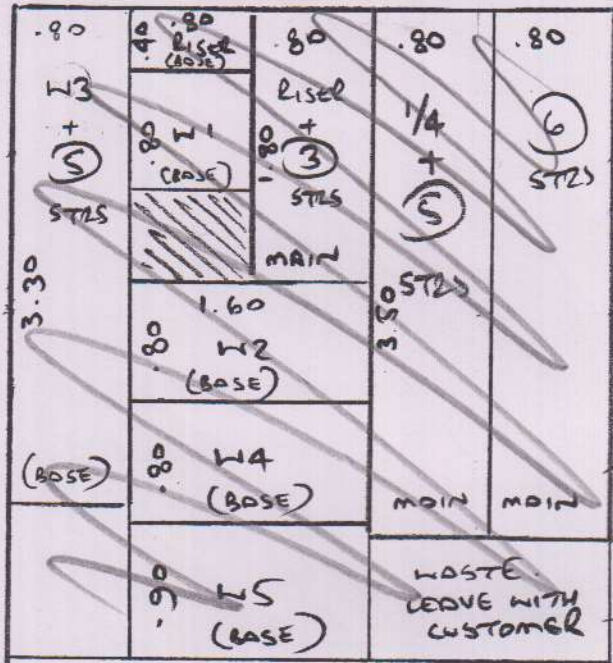 .80
W3
+
5
STRS
3.30
(BASE)
.40
.80
RISER
(BASE)
.80
W1
(BASE)
.80
RISER
+
3
STRS
1.80
MAIN
1.60
.80
W2
(BASE)
.80
W4
(BASE)
.90
W5
(BASE)
.80
1/4
+
5
STRS
3.50
MAIN
.80
6
STRS
MAIN
WASTE.
LEAVE WITH
CUSTOMER